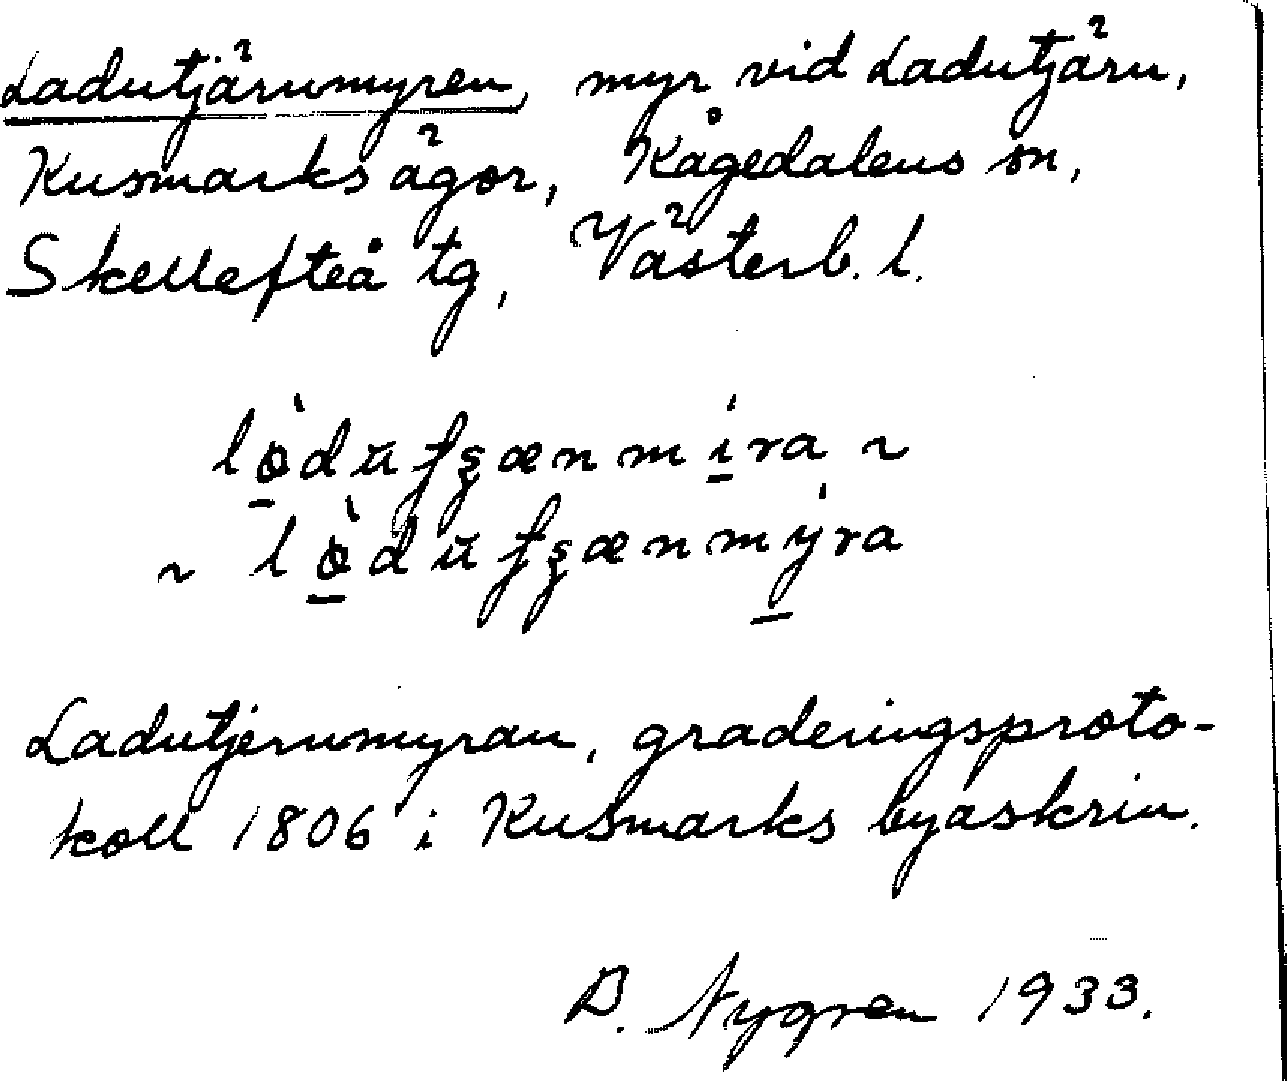 Ladutjärnmyren, myr vid Ladutjärn,
Kusmarks ägor, Kågedalens sn,
Skellefteå tg, Västerb. l.
Ladutjernmyran, graderingsproto-
koll 1806 i Kusmarks byaskrin.
B. Nygren 1933.